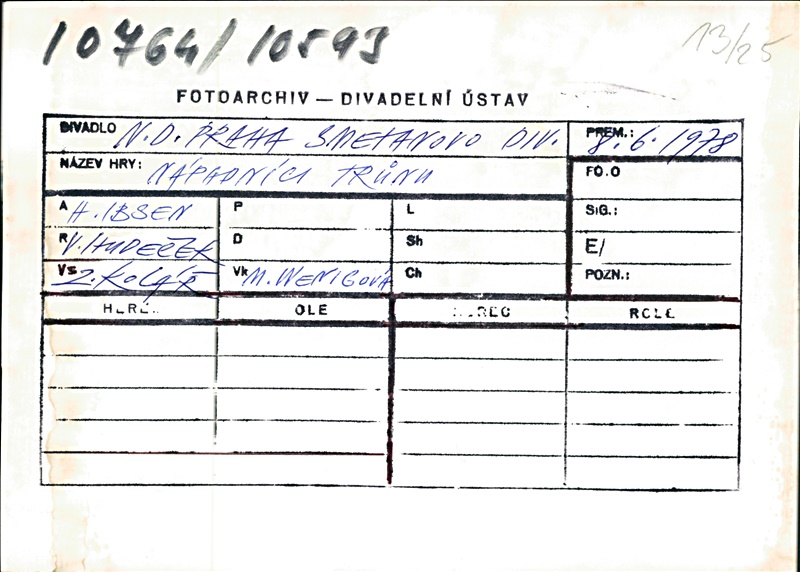 10764/10593
13/25
FOTOARCHIV — DIVADELNÍ ÚSTAV
DIVADLO N.D. PRAHA SMETANOVO DIV. PREM.: 8. 6. 1978
NÁZEV HRY: NÁPADNÍCI TRŮNU FO.O
A H. IBSEN P L SIG.:
R V. HUDEČEK D Sh E/
Vs Z. KOLÁŘ Vk M. WENIGOVÁ Ch POZN.:
ROLE